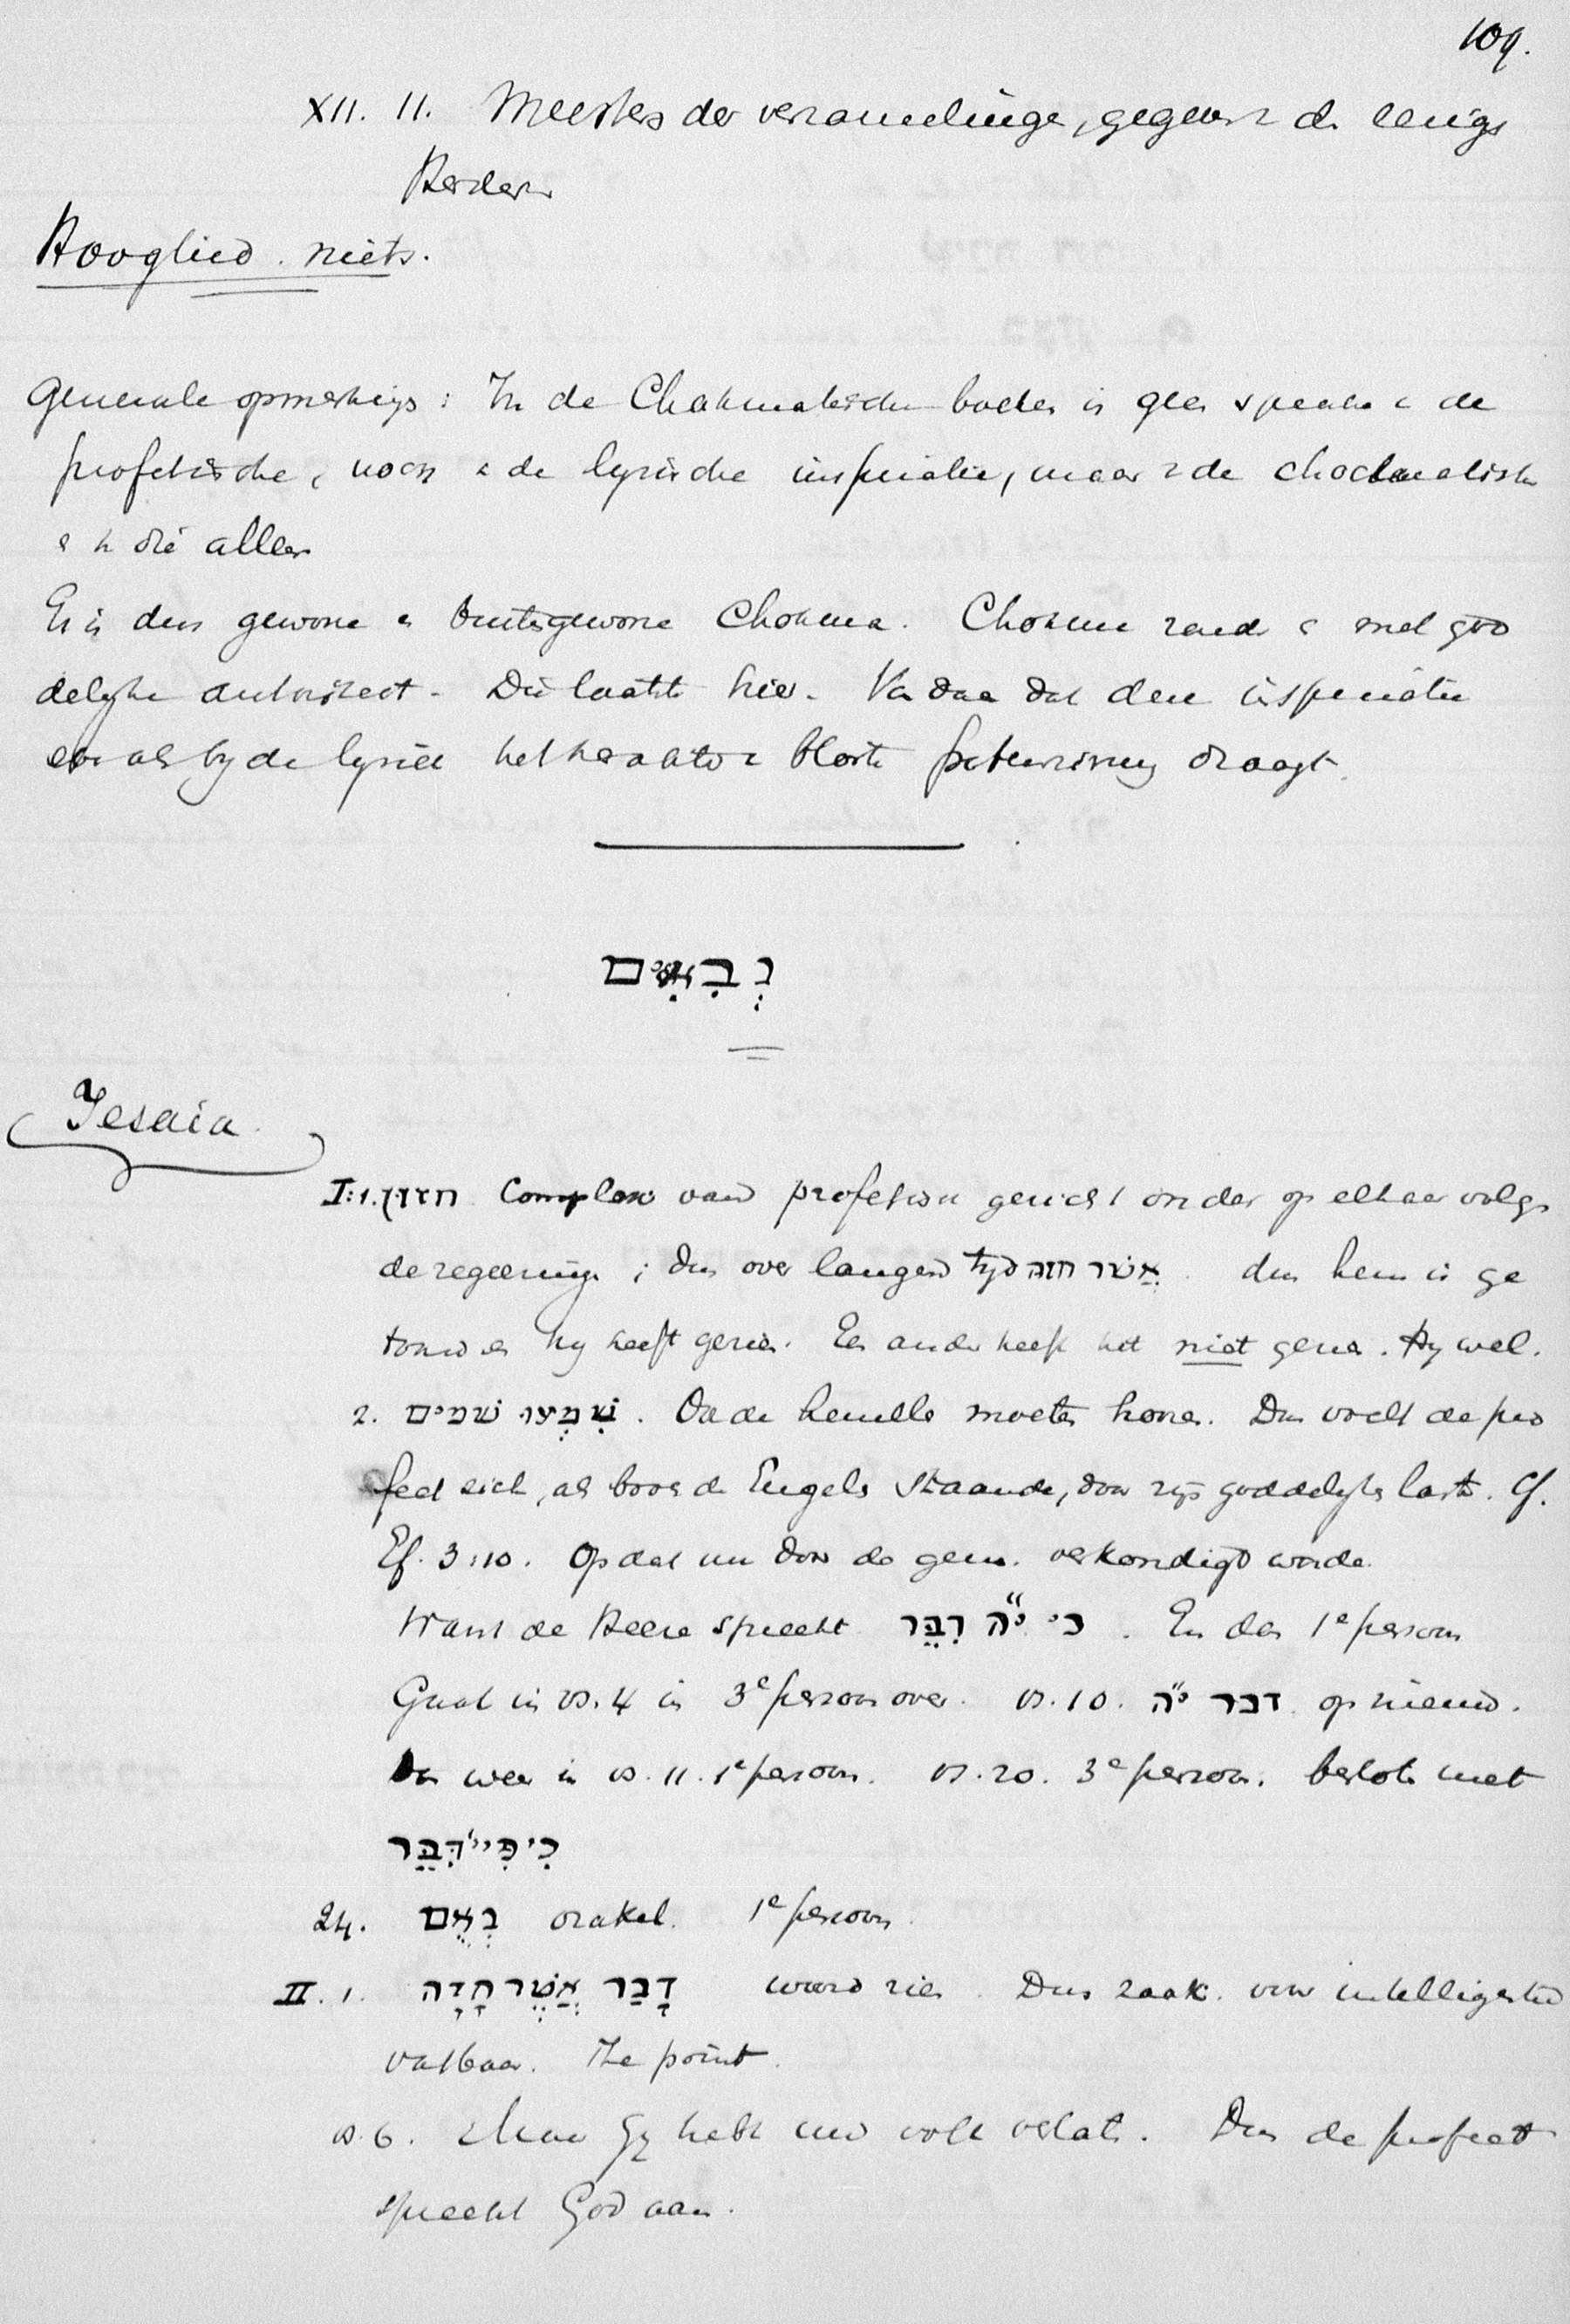 109.
XII. 11. Meesters der verzamelinge, gegeven v. d. eenige
Herder
Hooglied. niets.
Generale opmerkings: In de Chokmatische boeken is geen sprake v de
profetische, noch v de lyrische inspiratie, maar v de chochmatische
e v die alleen
Er is dus gewone e buitegewone Chokma. Chokma zonder e met god
delyke autoriteit. Die laatste hier. Van daar dat deze inspiratie
evenals by de lyriek het karakter v bloote besturing draagt.
נְבִאִים
Jesaia.
I:1. חזון Complex van profetisch gezicht onder op elkaar volgen
de regeeringe; dus over langen tyd אֲשר חזה. dus hem is ge
toond en hy heeft gezien. Een ander heeft het niet gezien. Hy wel.
2. שִׁמְעוּ שמים. Ook de hemelen moeten hooren. Dus voelt de pro
feet zich, als boven de Engelen staande, door zyn goddelyke last. Cf.
Ef. 3:10. Opdat nu door de gem. verkondigd worde.
Want de Heere spreekt כי י״ה דִבֵּר. En dan 1e persoon
Gaat in vs. 4 in 3e persoon over. vs. 10. דבר י״ה opnieuw.
Dan weer in vs. 11. 1e persoon. vs. 20. 3e persoon. besloten met
כִי פִּי י״ דִּבֵּר
24. נְאֻם orakel. 1e persoon.
II. 1. דָבַר אֲשֶׁר חָזָה woord zien. Dus zaak. voor intelligentie
vatbaar. The point.
vs. 6. Maar Gy hebt uw volk verlaten. Dus de profeet
spreekt God aan.